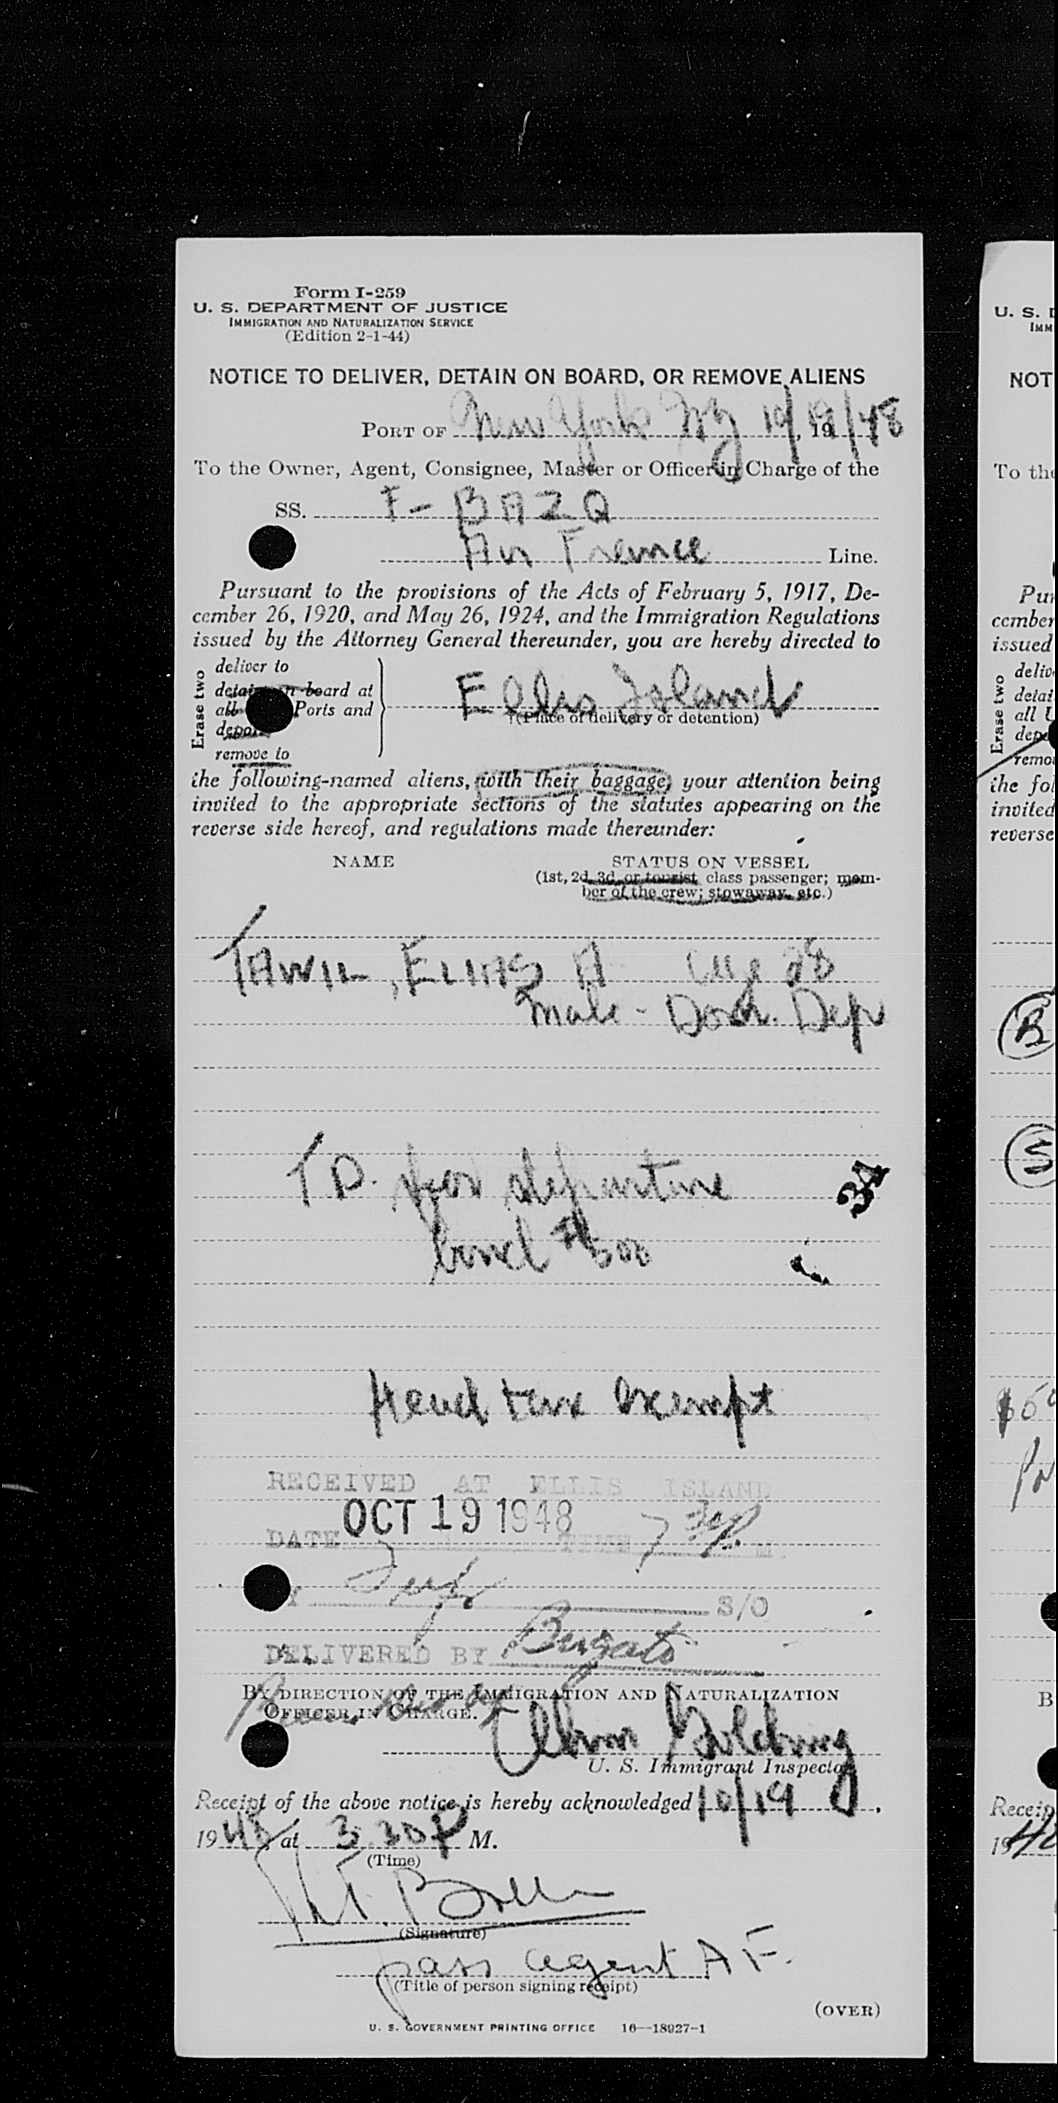 Form I-259
U. S. DEPARTMENT OF JUSTICE
IMMIGRATION AND NATURALIZATION SERVICE
(Edition 2-1-44)
NOTICE TO DELIVER, DETAIN ON BOARD, OR REMOVE ALIENS
PORT OF New York NY 10/19/48, 19
To the Owner, Agent, Consignee, Master or Officer in Charge of the
SS. F-BAZQ
Air France Line.
Pursuant to the provisions of the Acts of February 5, 1917, De-
cember 26, 1920, and May 26, 1924, and the Immigration Regulations
issued by the Attorney General thereunder, you are hereby directed to
Erase two
deliver to
detain on board at
all Ports and
deport
remove to
Ellis Island
(Place of delivery or detention)
the following-named aliens, (with their baggage) your attention being
invited to the appropriate sections of the statutes appearing on the
reverse side hereof, and regulations made thereunder:
NAME STATUS ON VESSEL
(1st, 2d, 3d, or tourist class passenger; mem-
ber of the crew; stowaway, etc.)
TAWIL, ELIAS A age 28
male - Dep
T D. for departure
34
bond $500
Head tax exempt
RECEIVED AT ELLIS ISLAND
DATE OCT 19 1948 TIME 7 30 P. M.
S/O
DELIVERED BY
BY DIRECTION OF THE IMMIGRATION AND NATURALIZATION
OFFICER IN CHARGE.
U. S. Immigrant Inspector
Receipt of the above notice is hereby acknowledged 10/19,
1948, at 3 30 P M.
(Time)
(Signature)
pass agent A F.
(Title of person signing receipt)
(OVER)
U. S. GOVERNMENT PRINTING OFFICE 16—18927-1